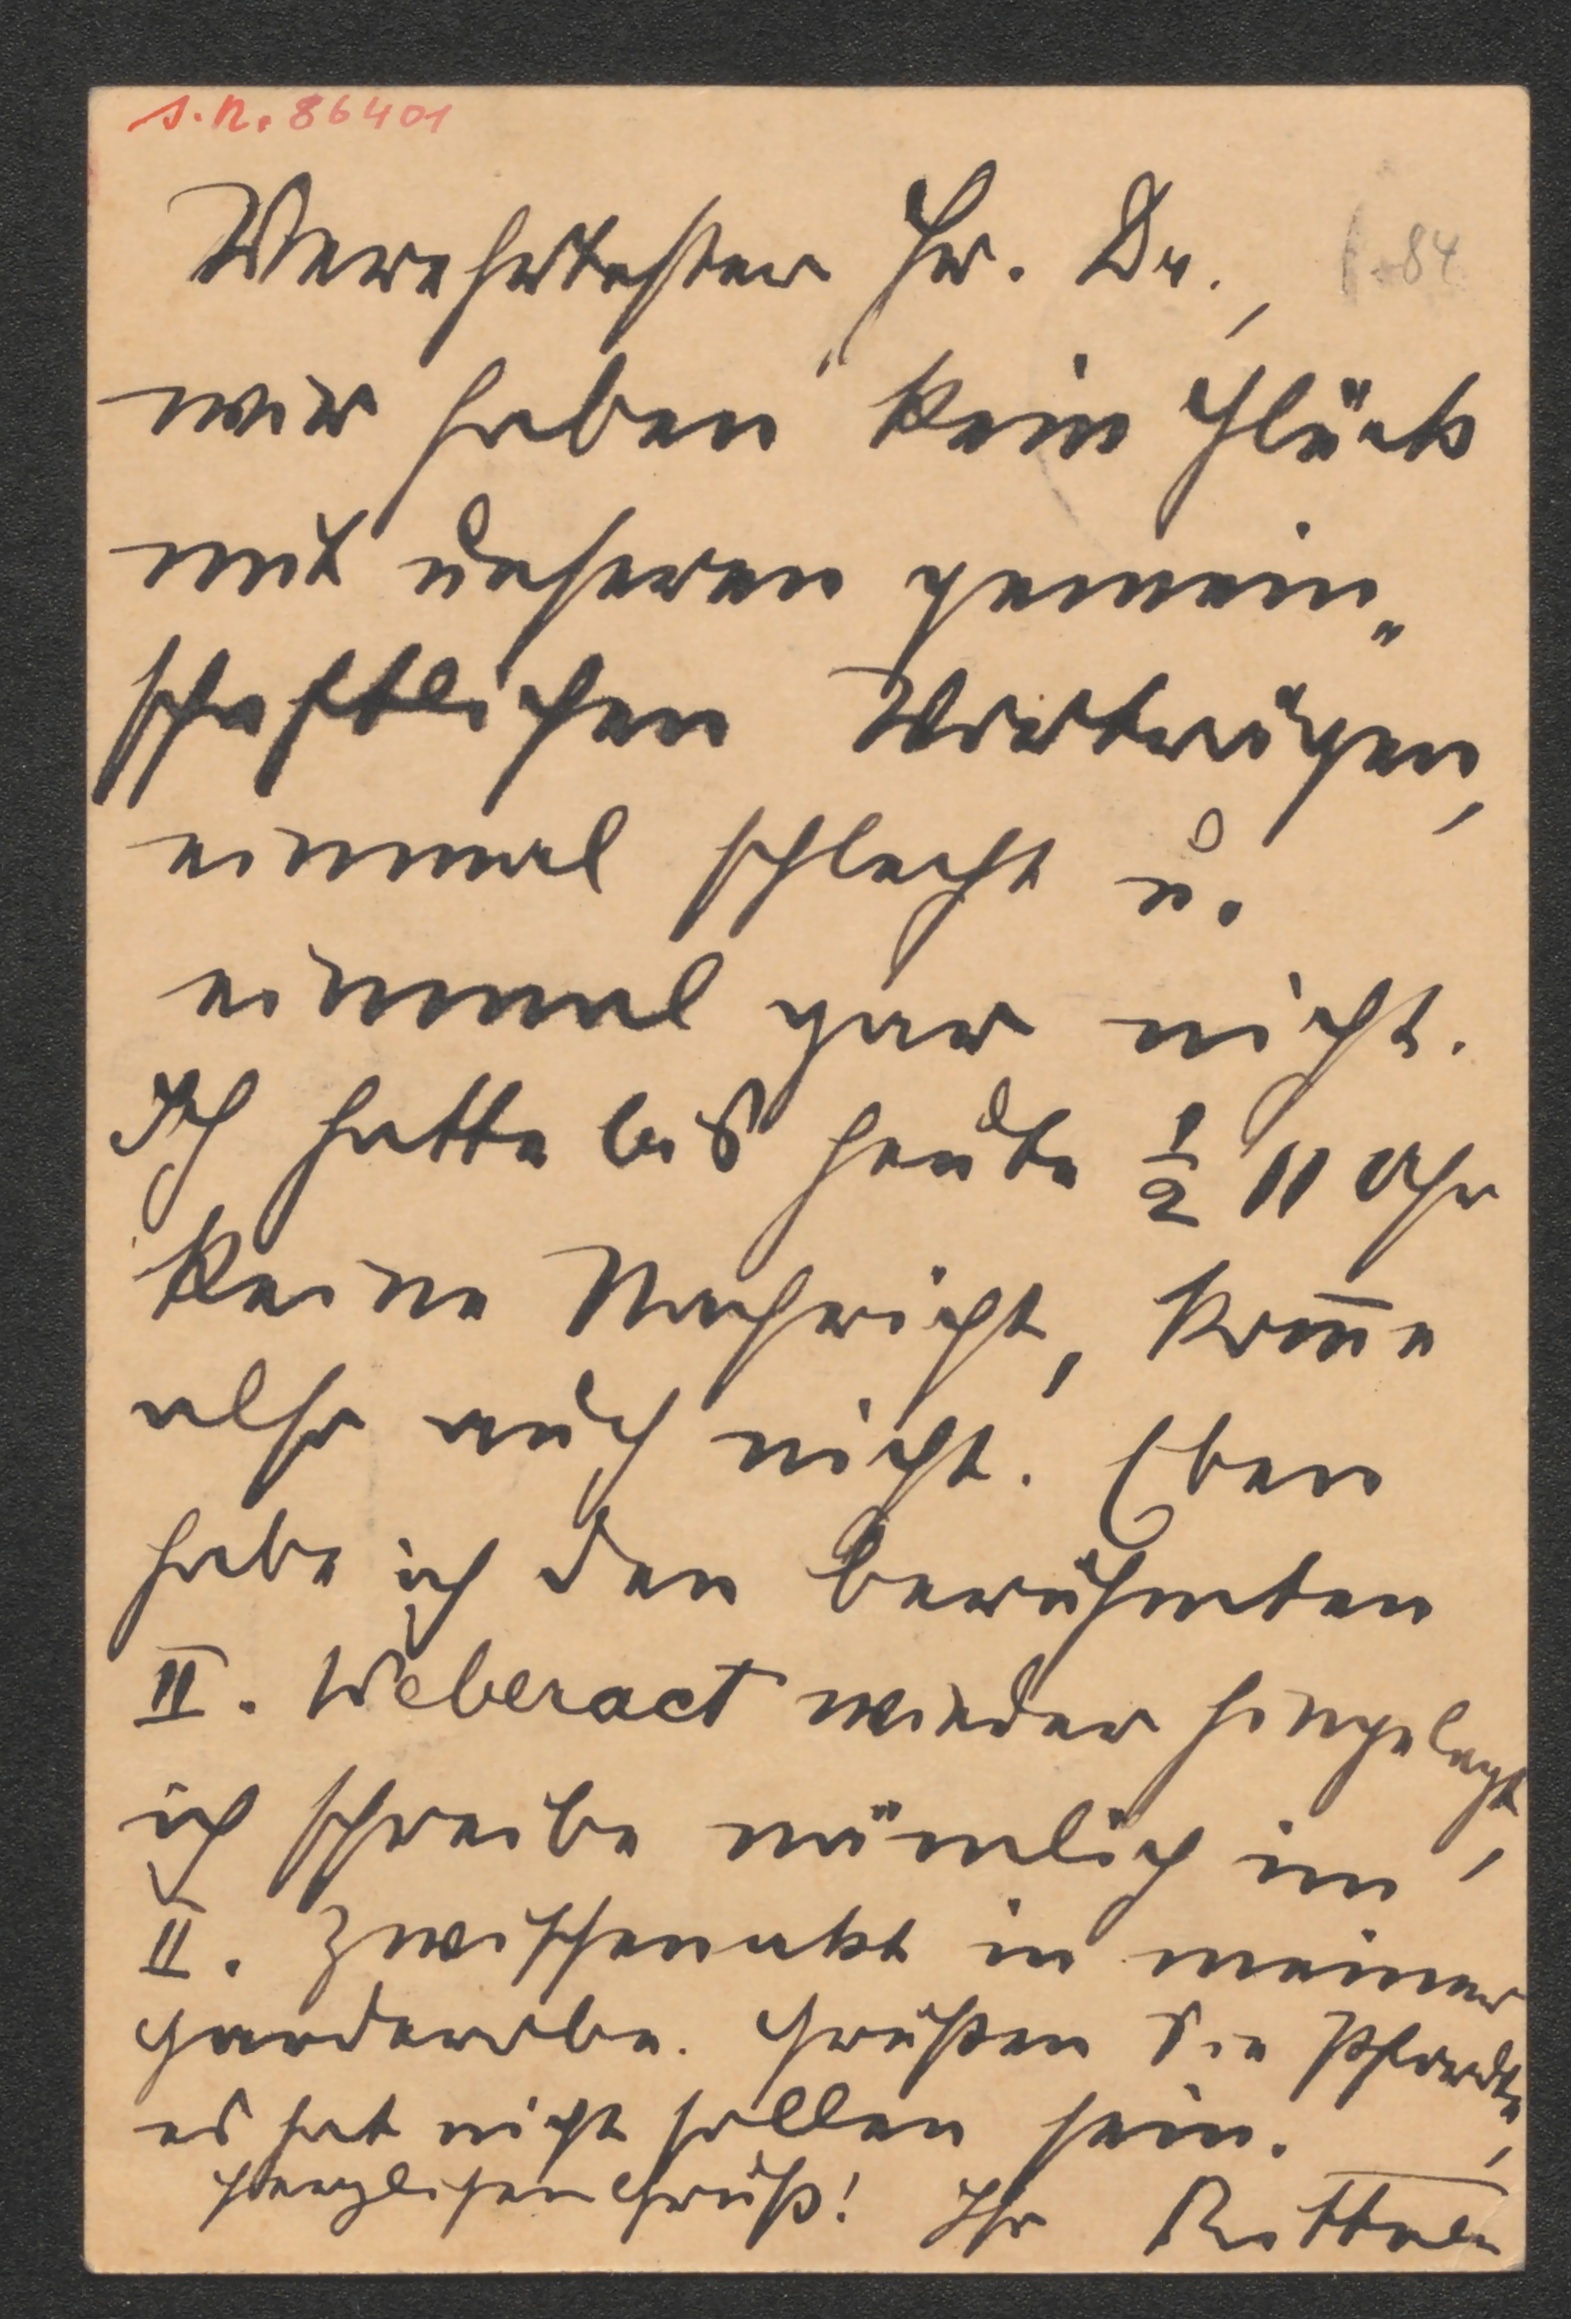 J.N. 86401
Verehrtester Hr. Dr.,
84
wir haben kein Glück
mit unseren gemein„
schaftlichen Verträgen,
einmal schlecht u.
einmal gar nicht.
Ich hatte bis heute ½ 11 Uhr
keine Nachricht, kom̅e
also auch nicht. Eben
habe ich den berühmten
II. Weberact wieder hingelegt,
ich schreibe nämlich im
II. Zwischenakt in meiner
Garderobe. Grüßen Sie
es hat nicht sollen sein.
Herzlichen Gruß! Ihr Rittner